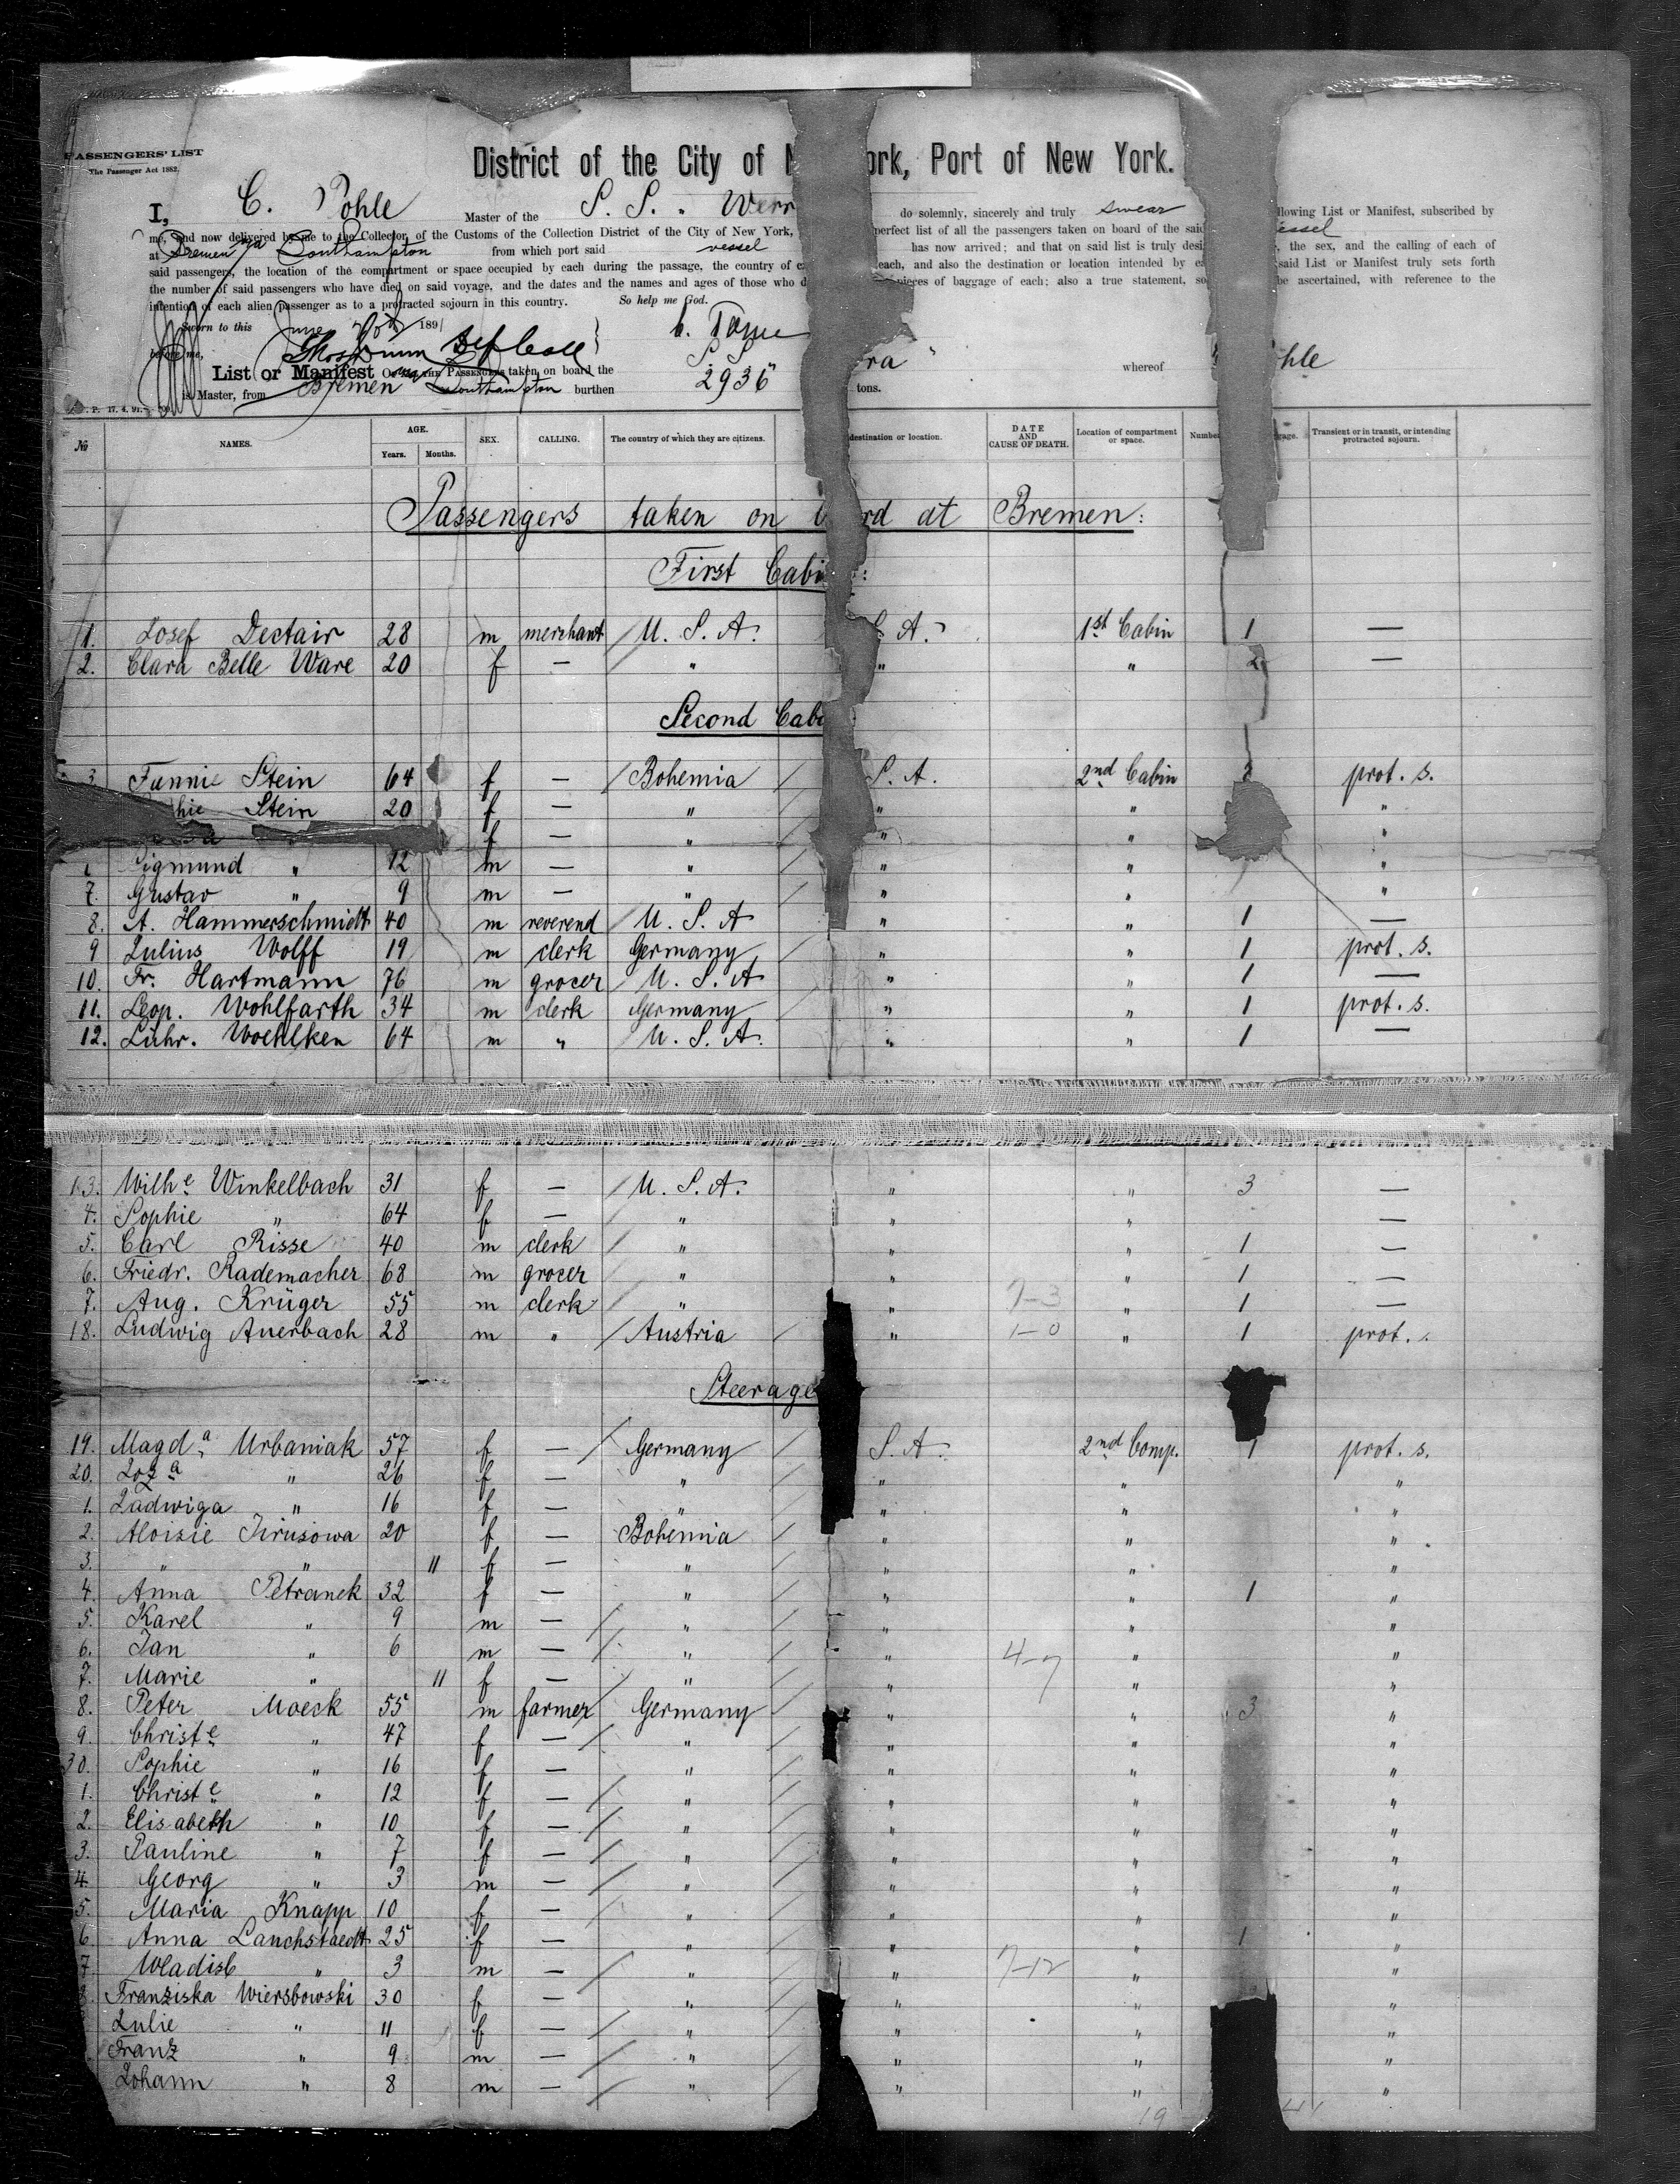 PASSENGERS' LIST
The Passenger Act 1882.
District of the City of N ork, Port of New York.
I, C. Pohle Master of the S. S. " Werr do solemnly, sincerely and truly swear llowing List or Manifest, subscribed by
me, and now delivered by me to the Collector of the Customs of the Collection District of the City of New York, perfect list of all the passengers taken on board of the said essel
at Bremen Southampton from which port said vessel has now arrived; and that on said list is truly desi the sex, and the calling of each of
said passengers, the location of the compartment or space occupied by each during the passage, the country of c each, and also the destination or location intended by e said List or Manifest truly sets forth
the number of said passengers who have died on said voyage, and the dates and the names and ages of those who d pieces of baggage of each; also a true statement, so be ascertained, with reference to the
intention of each alien passenger as to a protracted sojourn in this country. So help me God.
Sworn to this June 1891
before me,
List or Manifest OF ALL THE PASSENGERS taken on board the S S ra" whereof ohle
is Master, from Bremen Southampton burthen 2936 tons.
No NAMES. AGE. Years. Months. SEX. CALLING. The country of which they are citizens. destination or location. DATE AND CAUSE OF DEATH. Location of compartment or space. Number gage. Transient or in transit, or intending protracted sojourn.
Passengers taken on b rd at Bremen:
First Cabi :
1. Josef Dectair 28 m merchant U. S. A. S. A. 1st Cabin 1 —
2. Clara Belle Ware 20 f — " " " 2 —
Second Cabi
3 Fannie Stein 64 f — Bohemia S. A. 2nd Cabin prot. s.
hie Stein 20 f — " " " "
f — " " " "
Sigmund " 12 m — " " " "
7. Gustav " 9 m — " " " "
8. A. Hammerschmidt 40 m reverend U. S. A " " 1 —
9 Julius Wolff 19 m clerk Germany " " 1 prot. s.
10. Fr. Hartmann 76 m grocer U. S. A " " 1 —
11. Leop. Wohlfarth 34 m clerk Germany " " 1 prot. s.
12. Lühr. Woehlken 64 m " U. S. A. " " 1 —
13. Wilhe Winkelbach 31 f — U. S. A. " " 3 —
4. Sophie " 64 f — " " " —
5. Carl Risse 40 m clerk " " " 1 —
6. Friedr. Rademacher 68 m grocer " " " 1 —
7. Aug. Krüger 55 m clerk " " 7-3 " 1 —
18. Ludwig Auerbach 28 m " Austria " 1-0 " 1 prot.
Steerage
19. Magda Urbaniak 57 f — Germany S. A. 2nd Comp. 1 prot. s.
20. Joza " 26 f — " " " "
1. Jadwiga " 16 f — " " " "
2. Aloisie Jirusowa 20 f — Bohemia " " "
3. " " 11 f — " " " "
4. Anna Petranek 32 f — " " " 1 "
5. Karel " 9 m — " " " "
6. Jan " 6 m — " " 4-7 " "
7. Marie " 11 f — " " " "
8. Peter Moeck 55 m farmer Germany " " 3 "
9. Christe " 47 f — " " " "
30. Sophie " 16 f — " " " "
1. Christe " 12 f — " " " "
2. Elisabeth " 10 f — " " " "
3. Pauline " 7 f — " " " "
4. Georg " 3 m — " " " "
5. Maria Knapp 10 f — " " " "
6 Anna Lanchstaedt 25 f — " " " 1 "
7 Wladisl " 3 m — " " 7-12 " "
8. Franziska Wiersbowski 30 f — " " " "
Julie " 11 f — " " " "
Franz " 9 m — " " " "
Johann " 8 m — " " " "
19